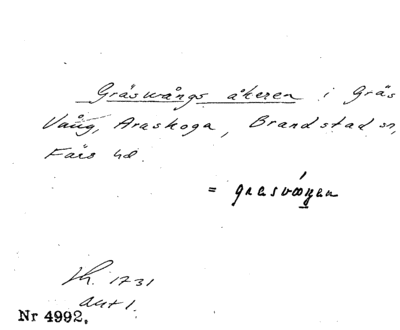 Gräswångs åkeren i Gräs
Vång, Araskoga, Brandstad sn,
Färs hd.
= gräsvǻŋen
Lh. 1731
akt 1.
Nr 4992.